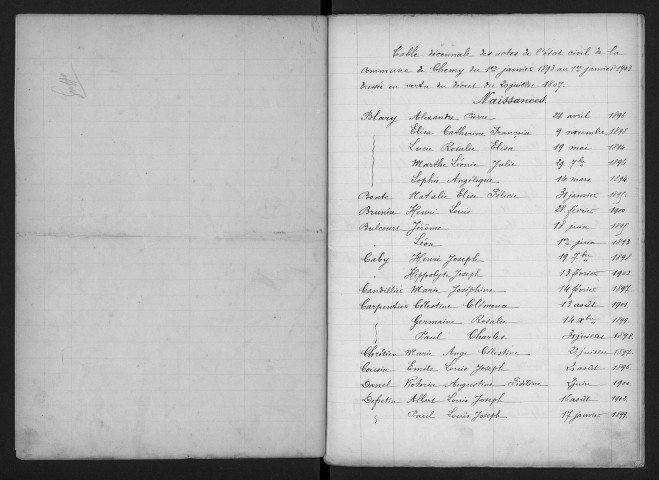 Table décennale des actes de l'état civil de la
commune de Chemy du 1er janvier 1893 au 1er janvier 1903
dressée en vertu du décret du 20 juillet 1807.
Naissances.
Blary Alexandre Pierre 28 avril 1896
Elisa Catherine Françoise 9 novembre 1898
Lucie Rosalie Elisa 19 mai 1894
Marthe Léonie Julie 29 7bre 1896
Sophie Angélique 14 mars 1894
Bonte Natalie Elise Félicie 31 janvier 1895
Brunin Henri Louis 28 février 1900
Bulcourt Jérôme 18 juin 1895
" Léon 1er juin 1893
Caby Henri Joseph 19 7bre 1898
Hippolyte Joseph 13 février 1902
Candillier Marie Joséphine 14 février 1897
Carpentier Célestine Clémence 13 août 1901
Germaine Rosalie 14 Xbre 1899
Paul Charles 31 juillet 1898
Chrétien Marie Ange Célestine juillet
Cousin Emile Louis Joseph août 1896
Danel Victoria Augustine juin 1900
Albert Louis Joseph 16 août 1902
" Paul Louis Joseph 17 janvier 1899